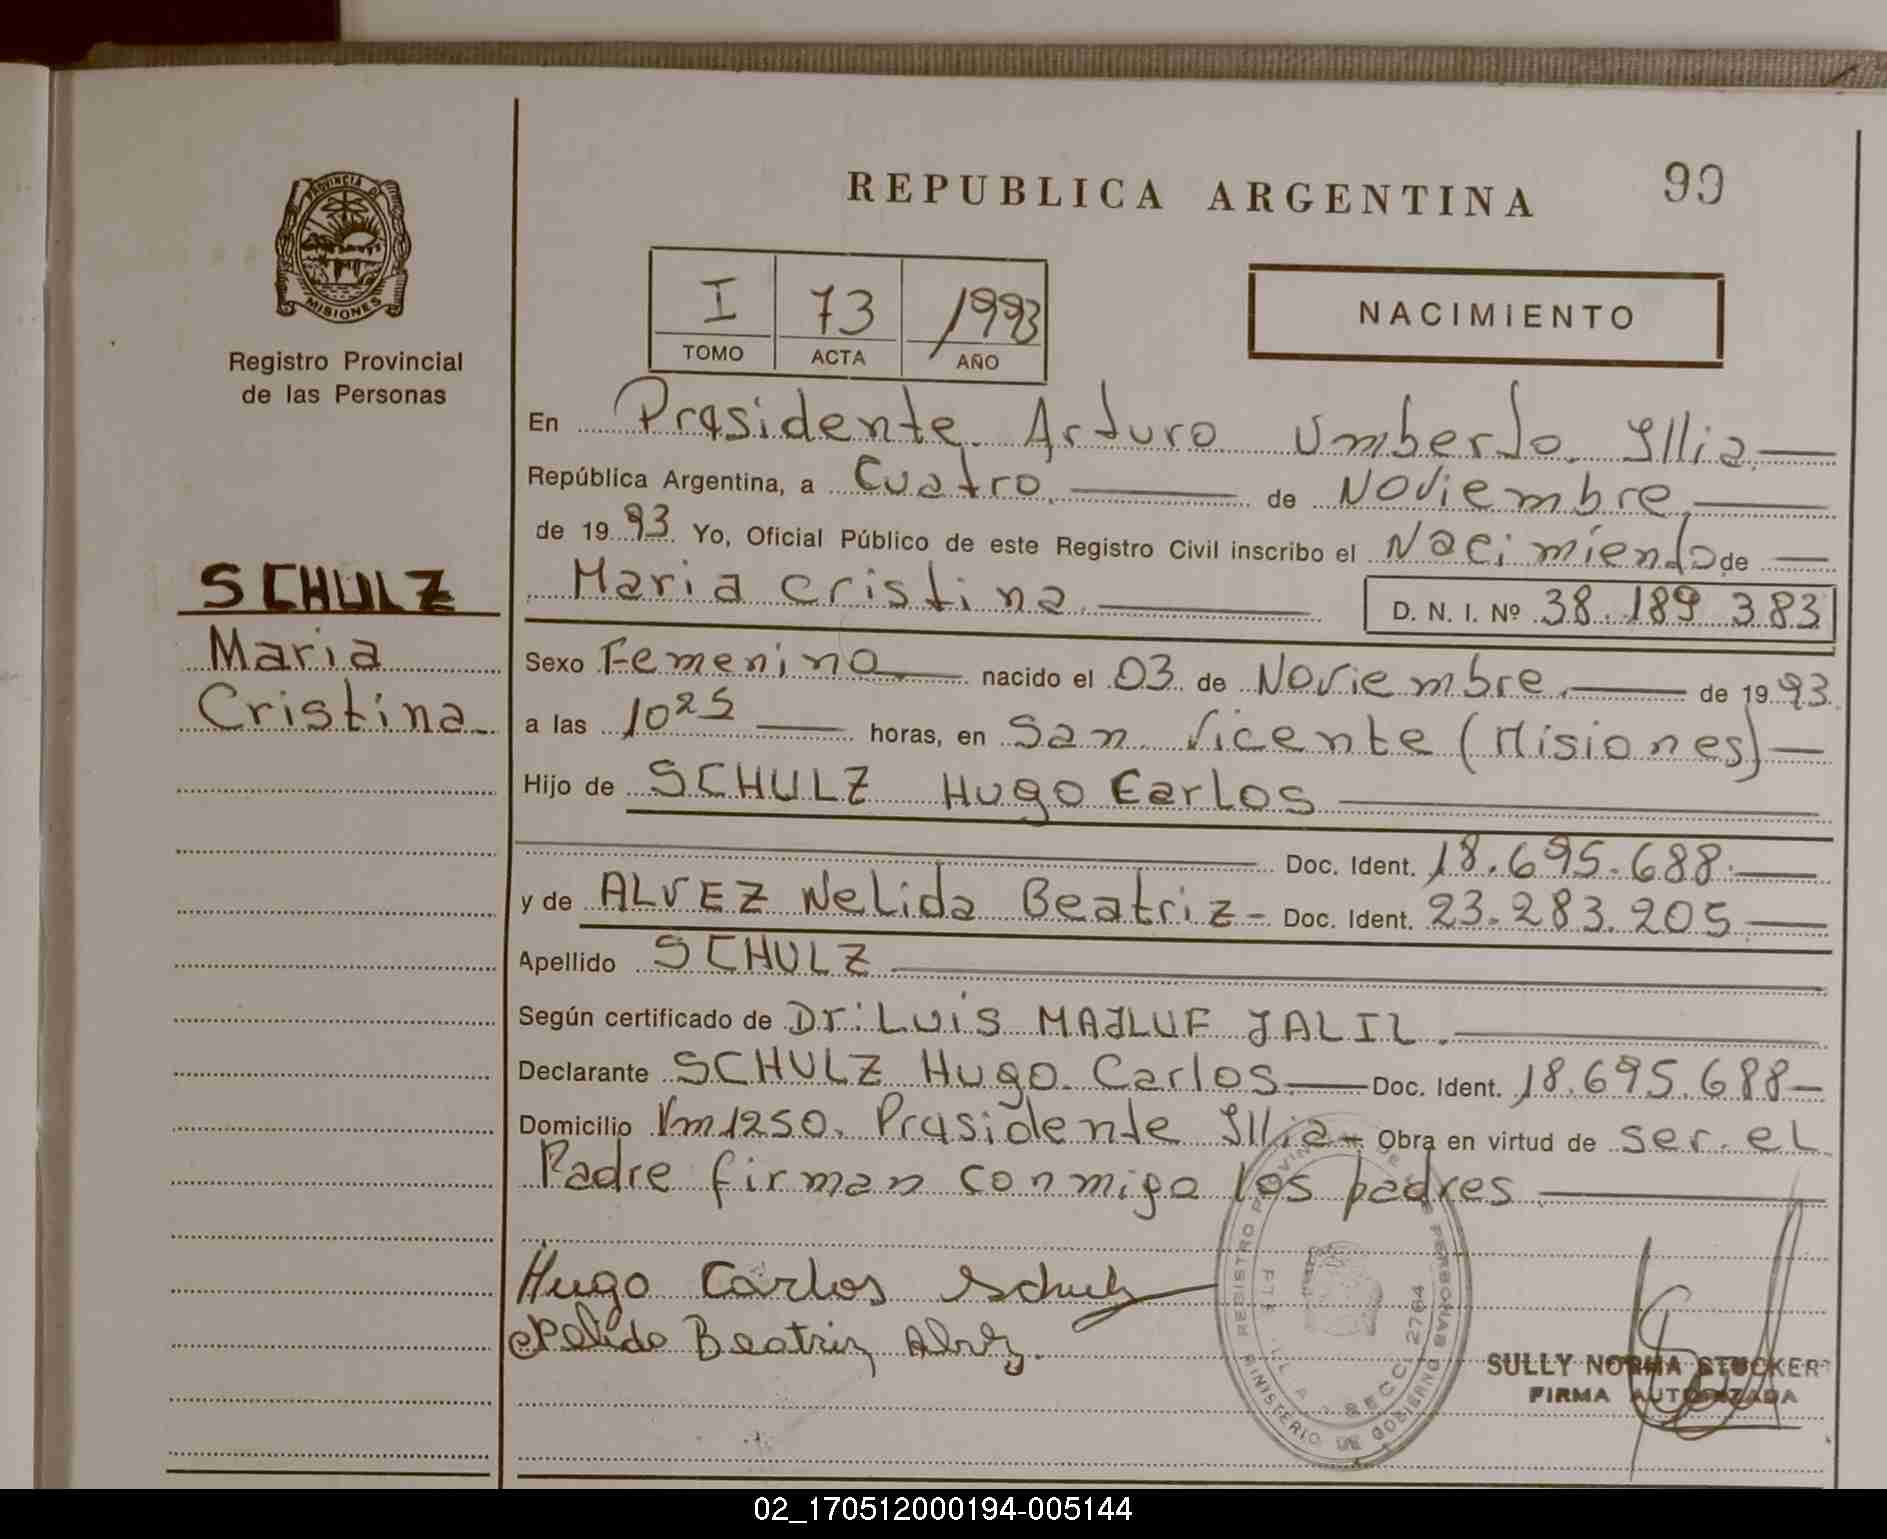 REPUBLICA ARGENTINA 99
PROVINCIA D
MISIONES
Registro Provincial
de las Personas
I 73 1993
TOMO ACTA AÑO
NACIMIENTO
SCHULZ
Maria
Cristina
En Presidente Arturo Umberto Illia
República Argentina, a Cuatro de Noviembre
de 1993 Yo, Oficial Público de este Registro Civil inscribo el Nacimiento de
Maria Cristina D. N. I. Nº 38.189.383
Sexo Femenino nacido el 03 de Noviembre de 1993
a las 10 25 horas, en San Vicente (Misiones)
Hijo de SCHULZ Hugo Carlos
Doc. Ident. 18.695.688
y de ALVEZ Nelida Beatriz Doc. Ident. 23.283.205
Apellido SCHULZ
Según certificado de Dr: LUIS MAJLUF JALIL.
Declarante SCHULZ Hugo Carlos Doc. Ident. 18.695.688
Domicilio Km 1250. Presidente Illia Obra en virtud de ser el
Padre firman conmigo los padres
Hugo Carlos Schulz
Nelida Beatriz Alvez.
REGISTRO PROVINCIAL DE LAS PERSONAS
MINISTERIO DE GOBIERNO
SECC. 2764
SULLY NORMA STUCKER
FIRMA AUTORIZADA
02_170512000194-005144